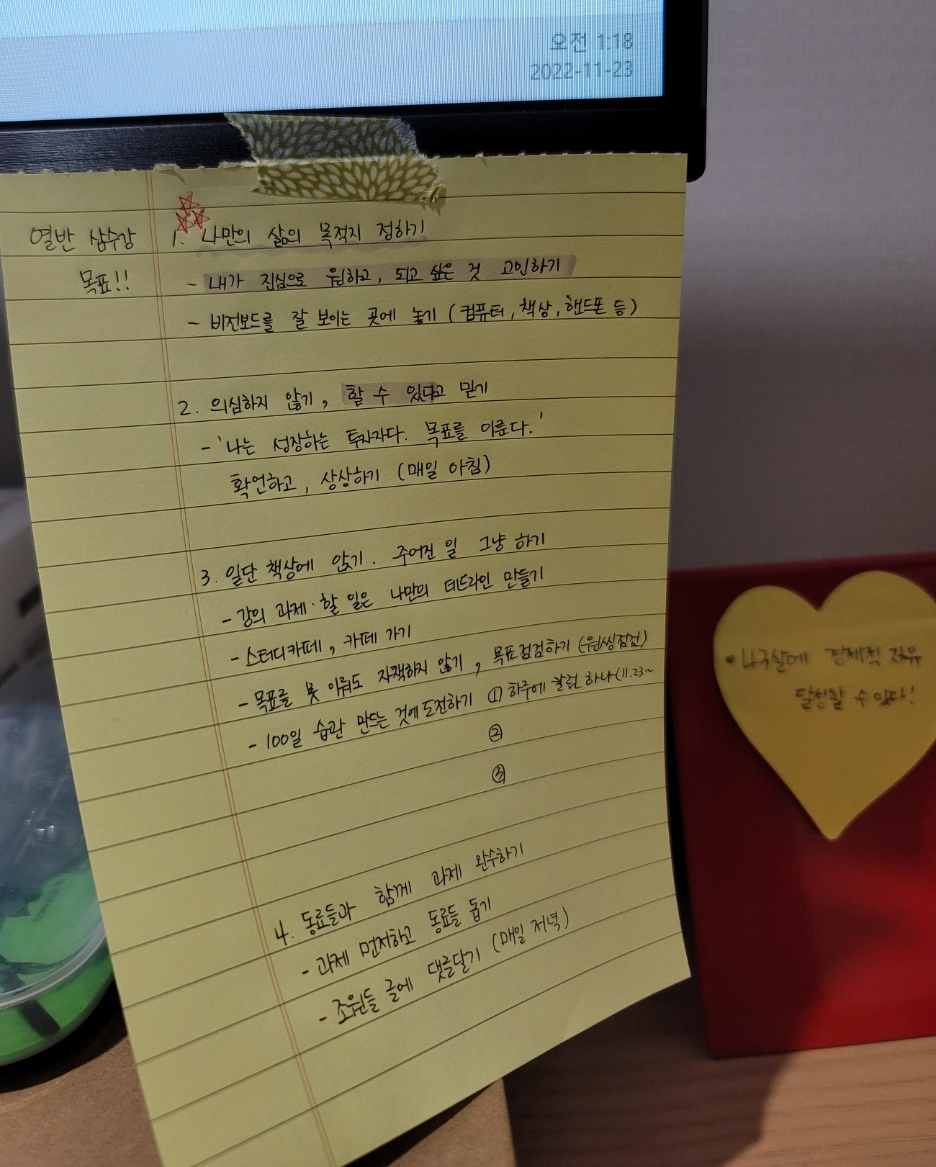 오전 1:18
2022-11-23
열반 삼수강
목표!!
1. 나만의 삶의 목적지 정하기
- 내가 진심으로 원하고, 되고 싶은 것 고민하기
- 비전보드를 잘 보이는 곳에 놓기 (컴퓨터, 책상, 핸드폰 등)
2. 의심하지 않기, 할 수 있다고 믿기
- '나는 성장하는 투자자다. 목표를 이룬다.'
확언하고, 상상하기 (매일 아침)
3. 일단 책상에 앉기. 주어진 일 그냥 하기
- 강의 과제·할 일은 나만의 데드라인 만들기
- 스터디카페, 카페 가기
- 목표를 못 이뤄도 자책하지 않기, 목표점검하기 (원씽점검)
- 100일 습관 만드는 것에 도전하기 ① 하루에 칼럼 하나 (11.23~
②
③
4. 동료들과 함께 과제 완수하기
- 과제 먼저하고 동료들 돕기
- 조원들 글에 댓글달기 (매일 저녁)
• 경제적 자유
달성할 수 있다!